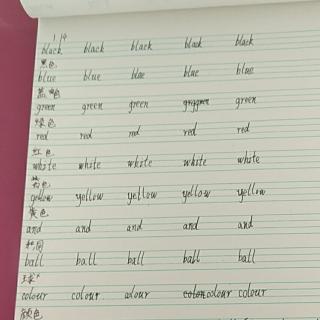 1.4
black black black black black
黑色
blue blue blue blue blue
蓝色
green green green green
绿色
red red red red red
红色
white white white white white
白色
yellow yellow yellow yellow yellow
黄色
and and and and and
和,同
ball ball ball ball ball
球
colour colour colour colour colour
颜色